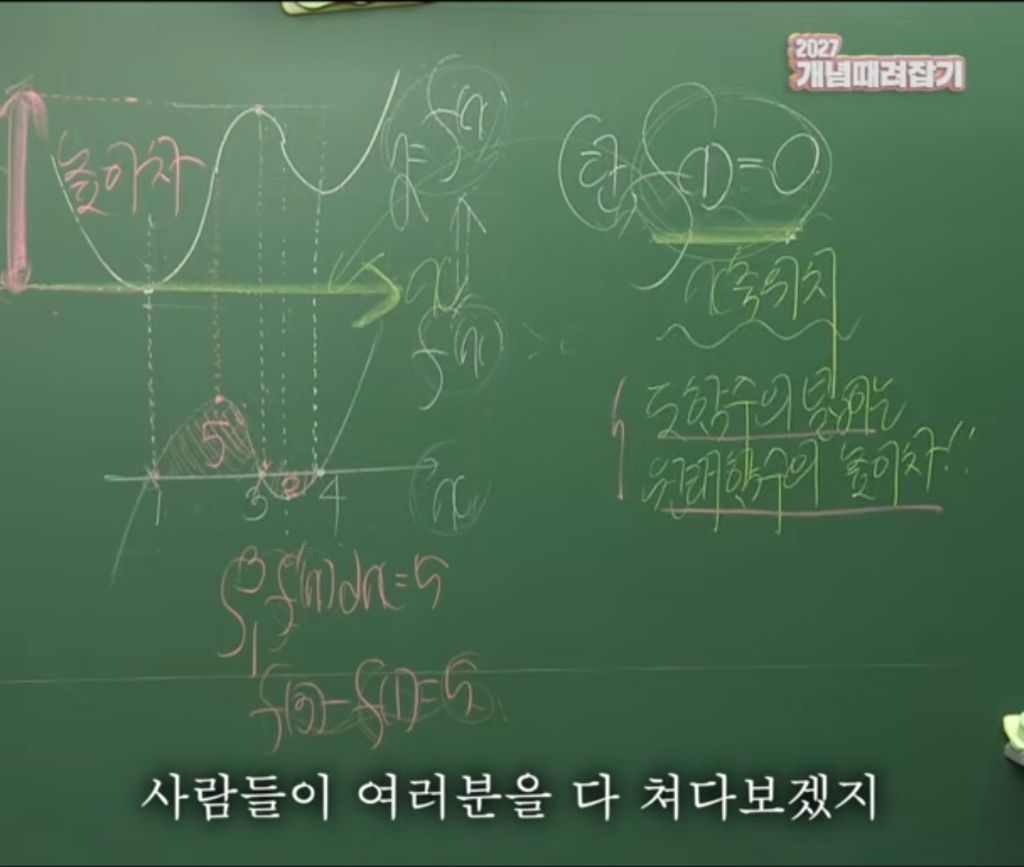 2027
개념때려잡기
높이차
y=f(x)
단, f(1)=0
x축위치
x
f'(x)
도함수의 넓이는
원래함수의 높이차!!
5
2
1 3 4
x
∫₁³ f'(x)dx=5
f(3)-f(1)=5
사람들이 여러분을 다 쳐다보겠지